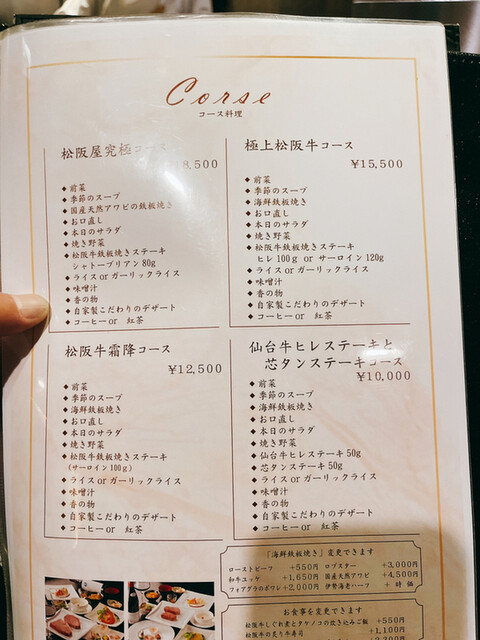 Corse
コース料理
松阪屋究極コース
8,500
◆ 前菜
◆ 季節のスープ
◆ 国産天然アワビの鉄板焼き
◆ お口直し
◆ 本日のサラダ
◆ 焼き野菜
◆ 松阪牛鉄板焼きステーキ
シャトーブリアン80g
◆ ライス or ガーリックライス
◆ 味噌汁
◆ 香の物
◆ 自家製こだわりのデザート
◆ コーヒー or 紅茶
極上松阪牛コース
¥15,500
◆ 前菜
◆ 季節のスープ
◆ 海鮮鉄板焼き
◆ お口直し
◆ 本日のサラダ
◆ 焼き野菜
◆ 松阪牛鉄板焼きステーキ
ヒレ100g or サーロイン120g
◆ ライス or ガーリックライス
◆ 味噌汁
◆ 香の物
◆ 自家製こだわりのデザート
◆ コーヒー or 紅茶
松阪牛霜降コース
¥12,500
◆ 前菜
◆ 季節のスープ
◆ 海鮮鉄板焼き
◆ お口直し
◆ 本日のサラダ
◆ 焼き野菜
◆ 松阪牛鉄板焼きステーキ
(サーロイン100g)
◆ ライス or ガーリックライス
◆ 味噌汁
◆ 香の物
◆ 自家製こだわりのデザート
◆ コーヒー or 紅茶
仙台牛ヒレステーキと
芯タンステーキコース
¥10,000
◆ 前菜
◆ 季節のスープ
◆ 海鮮鉄板焼き
◆ お口直し
◆ 本日のサラダ
◆ 焼き野菜
◆ 仙台牛ヒレステーキ 50g
◆ 芯タンステーキ 50g
◆ ライス or ガーリックライス
◆ 味噌汁
◆ 香の物
◆ 自家製こだわりのデザート
◆ コーヒー or 紅茶
「海鮮鉄板焼き」変更できます
ローストビーフ +550円 ロブスター +3,000円
和牛ユッケ +1,650円 国産天然アワビ +4,500円
フォアグラのポワレ +2,000円 伊勢海老ハーフ + 時価
お食事を変更できます
松阪牛しぐれ煮とタケノコの炊き込みご飯 +550円
松阪牛の炙り牛寿司 +1,100円